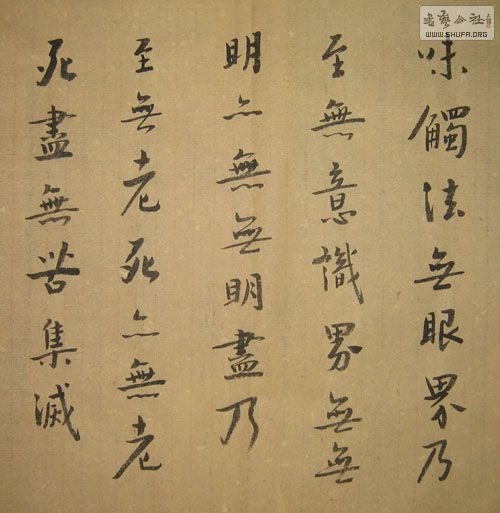 味觸法無眼界乃
至無意識界無無
明亦無無明盡乃
至無老死亦無老
死盡無苦集滅
書藝公社
WWW.SHUFA.ORG